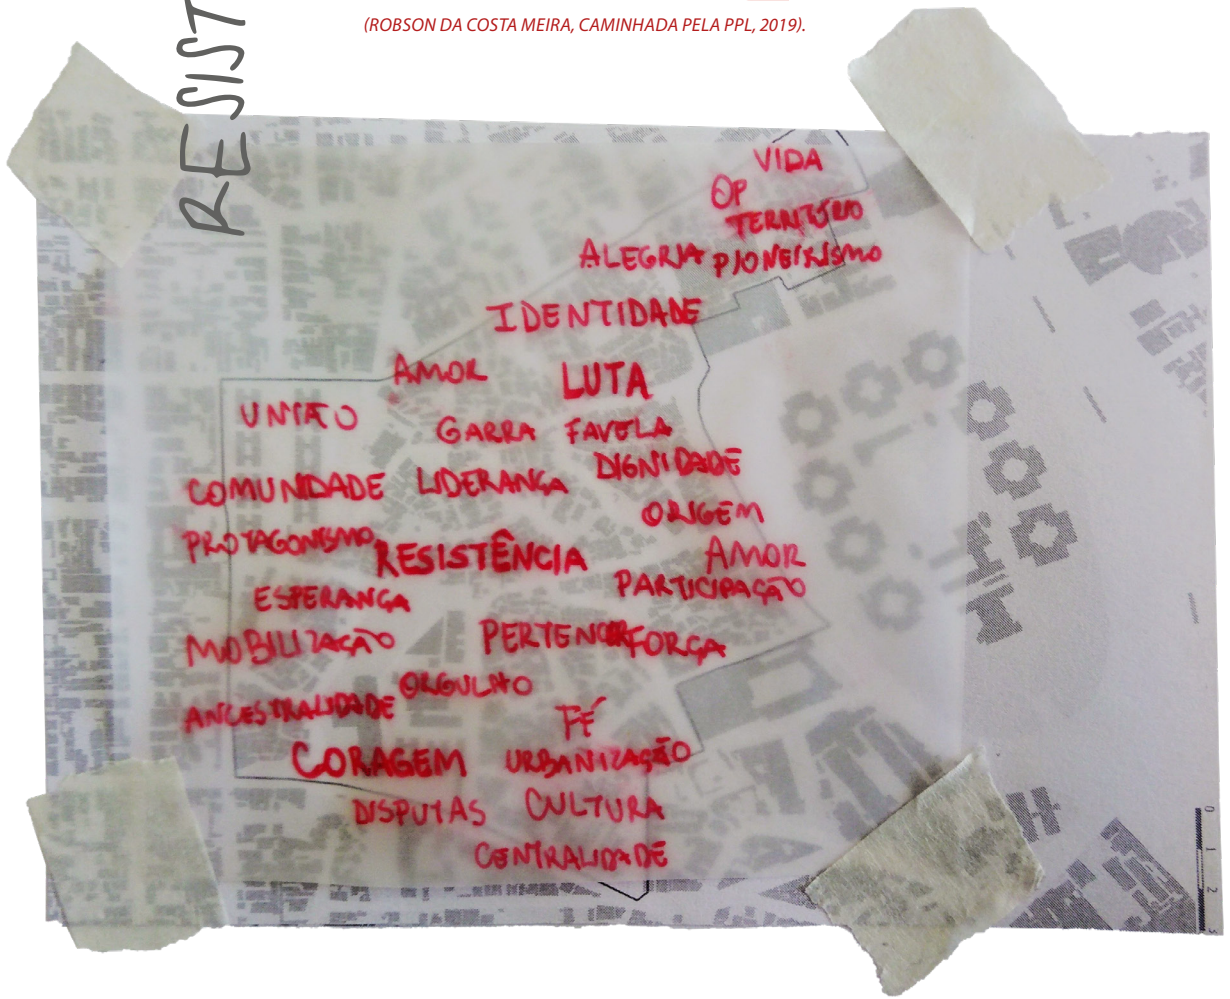 (ROBSON DA COSTA MEIRA, CAMINHADA PELA PPL, 2019).
RESIST
VIDA
OP
TERRITÓRIO
ALEGRIA PIONEIRISMO
IDENTIDADE
AMOR LUTA
UNIÃO
GARRA FAVELA
DIGNIDADE
COMUNIDADE LIDERANÇA
ORIGEM
PROTAGONISMO
RESISTÊNCIA AMOR
PARTICIPAÇÃO
ESPERANÇA
MOBILIZAÇÃO PERTENCER FORÇA
ORGULHO
ANCESTRALIDADE
FÉ
CORAGEM URBANIZAÇÃO
DISPUTAS CULTURA
CENTRALIDADE
0 1 2 3